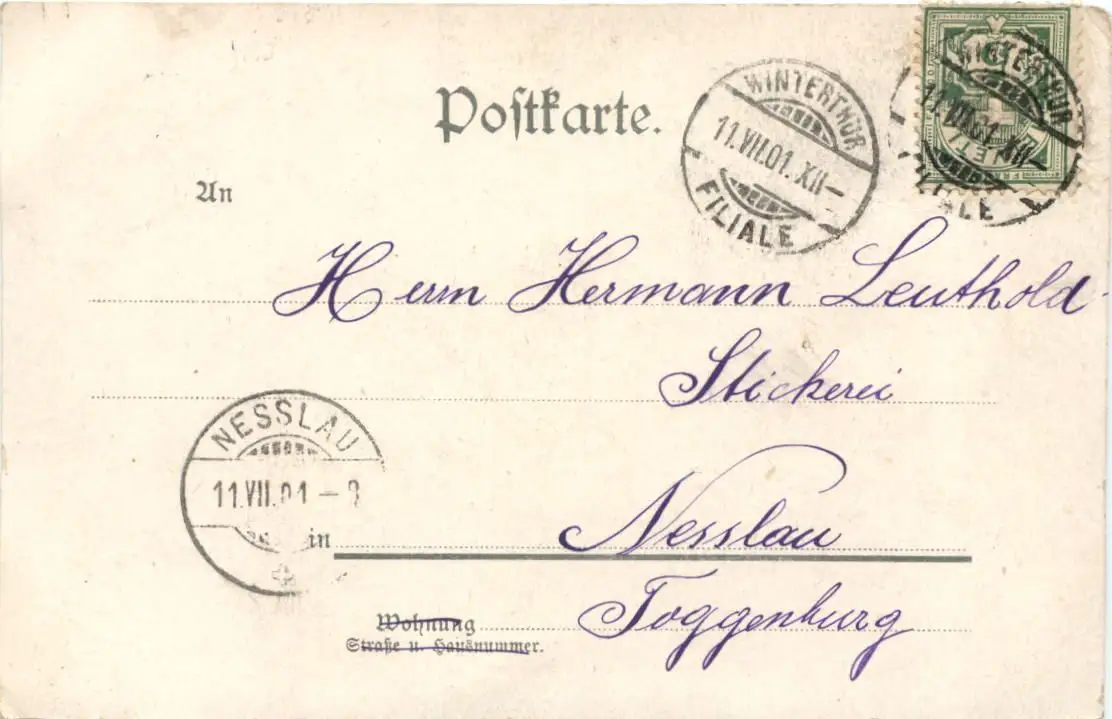 Postkarte.
WINTERTHUR
11.VII.01.XII–
FILIALE
WINTERTHUR
11.VII.01.XII–
FILIALE
An
Herrn Hermann Leuthold
Stickerei
NESSLAU
11.VII.01 –
in Nesslau
Toggenburg
Wohnung
Straße u. Hausnummer.